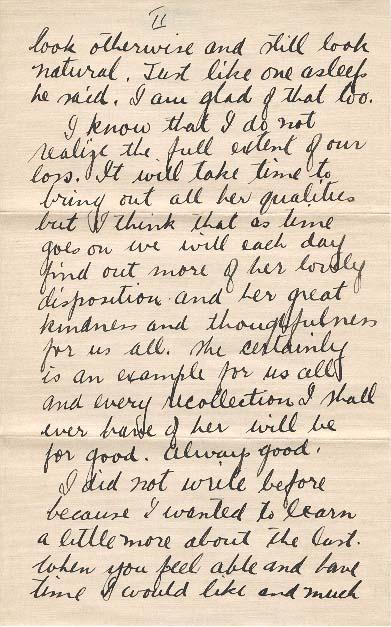 II
look otherwise and still look
natural. Just like one asleep
he said. I am glad of that too.
I know that I do not
realize the full extent of our
loss. It will take time to
bring out all her qualities
but I think that as time
goes on we will each day
find out more of her lovely
disposition and her great
kindness and thoughtfulness
for us all. She certainly
is an example for us all
and every recollection I shall
ever have of her will be
for good. Always good.
I did not write before
because I wanted to learn
a little more about the last.
When you feel able and have
time I would like and much